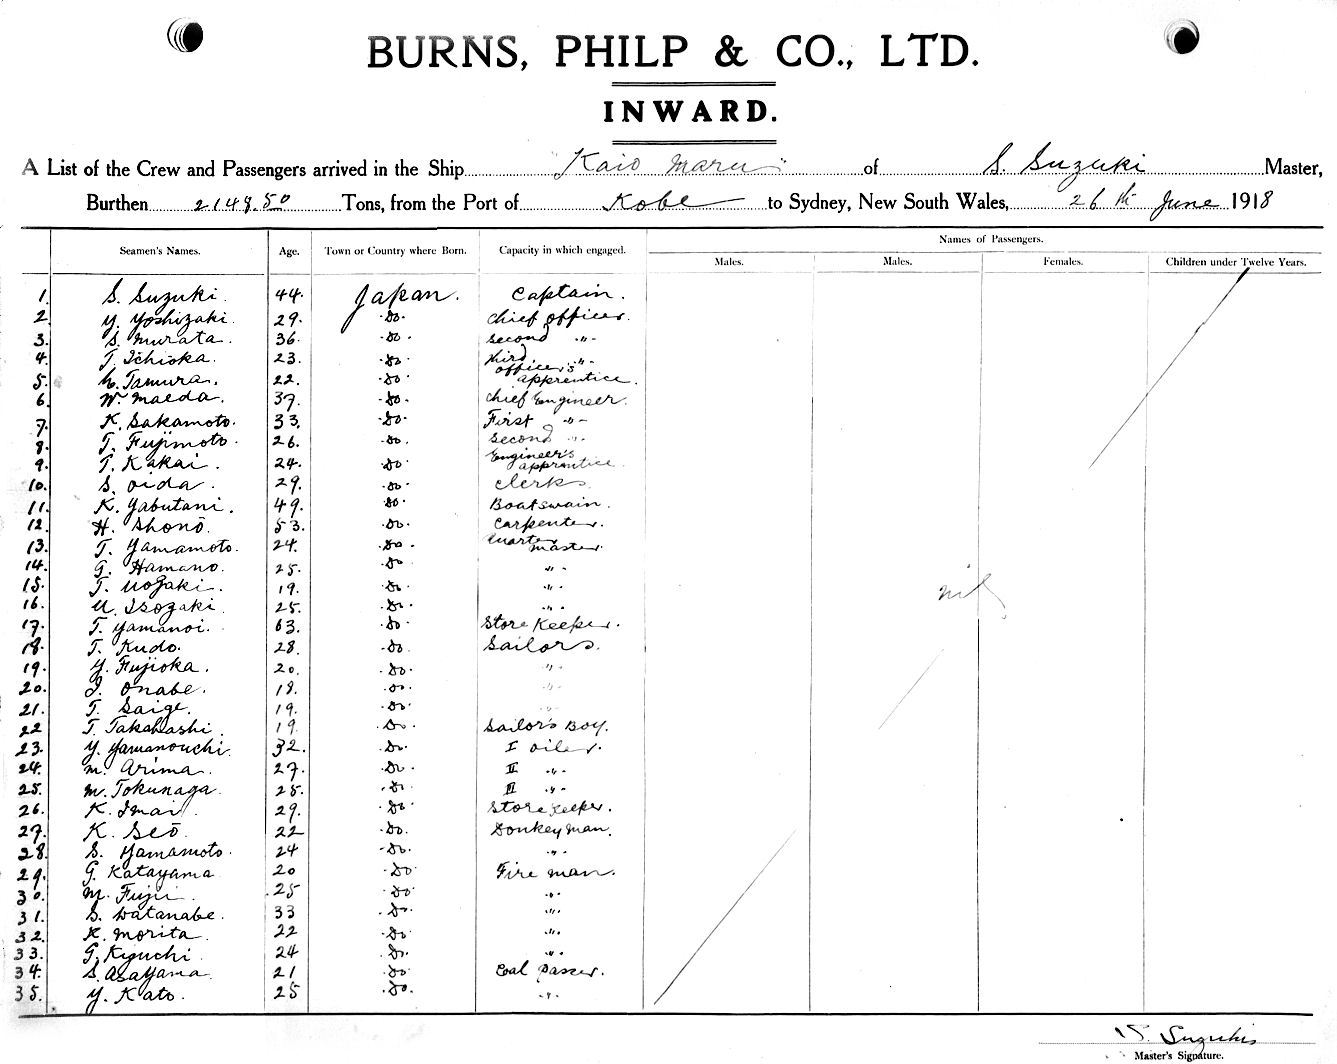 BURNS, PHILP & CO., LTD.
INWARD.
A List of the Crew and Passengers arrived in the Ship "Kaio Maru" of S. Suzuki Master,
Burthen 2148.50 Tons, from the Port of Kobe to Sydney, New South Wales, 26th June 1918
Names of Passengers.
Seamen's Names. Age. Town or Country where Born. Capacity in which engaged. Males. Males. Females. Children under Twelve Years.
1. S. Suzuki. 44. Japan. Captain.
2. Y. Yoshizaki. 29. do. Chief officer.
3. S. Murata. 36. do. Second -"-
4. T. Ichioka. 23. do. Third -"-
5. Tamura. 22. do. officer's apprentice.
6. W. Maeda. 37. do. Chief Engineer.
7. K. Sakamoto. 33. do. First -"-
8. T. Fujimoto. 26. do. Second -"-
9. T. Kakai. 24. do. Engineer's apprentice
10. S. Oida. 29. do. Clerks.
11. K. Yabutani. 49. do. Boatswain.
12. H. Shonō. 53. do. Carpenter.
13. T. Yamamoto. 24. do. Quarter master.
14. G. Hamano. 25. do -"-
15. T. Uozaki. 19. do. -"-
16. U. Isozaki 25. do. -"-
nil
17. T. Yamanoi. 63. do. Store Keeper.
18. T. Kudo. 28. do. Sailors.
19. Y. Fujioka. 20. do. -"-
20. Onabe. 18. do. -"-
21. T. Saige. 19. do. -"-
22 T. Takahashi. 19. do. Sailor's Boy.
23. Y. Yamanouchi. 32. do. I oiler.
24. M. Arima. 27. do. II -"-
25. M. Tokunaga. 25. do. III -"-
26. K. Imai. 29. do. Store Keeper.
27. K. Seō. 22 do. Donkey man.
28. S. Yamamoto. 24 do. -"-
29. G. Katayama 20 do. Fire man.
30. M. Fujii. 25 do. -"-
31. S. Watanabe. 33 do. -"-
32. K. Morita. 22 do. -"-
33. G. Kiguchi. 24 do. -"-
34. S. Asayama. 21 do. Coal Passer.
35. Y. Kato. 25 do. -"-
S. Suzuki
Master's Signature.